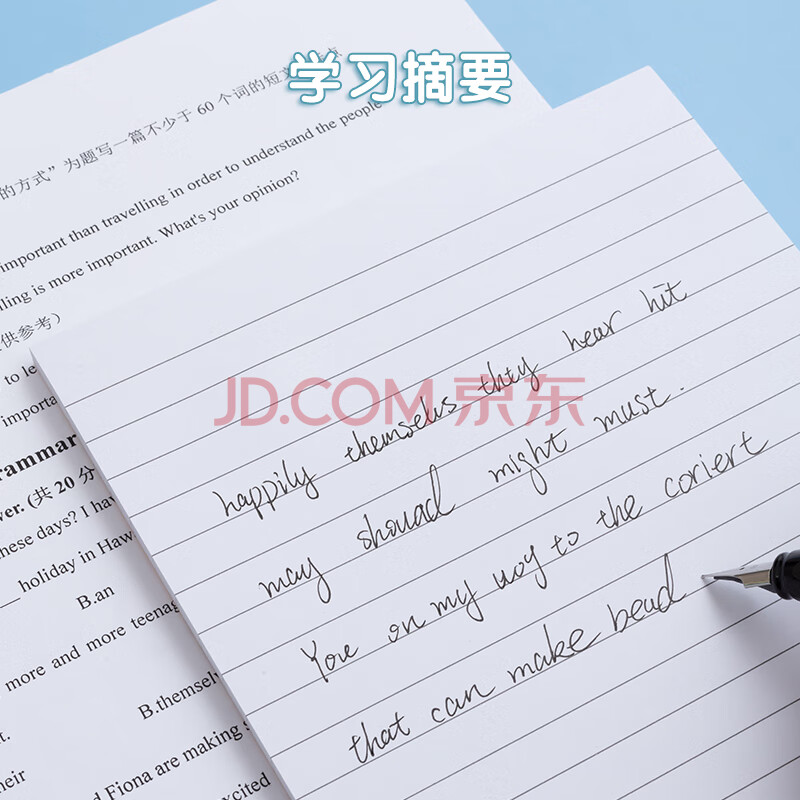 学习摘要
的方式”为题写一篇不少于 60 个词的短文
important than travelling in order to understand the people
ling is more important. What's your opinion?
供参考）
to le
importa
rammar
wer. (共 20 分
hese days? I hav
holiday in Haw
B.an
more and more teenag
B.themselv
t.
heir
d Fiona are making s
xcited
JD.COM 京东
happily themselves they hear hit
may shouad might must.
You on my way to the coriert
that can make bead